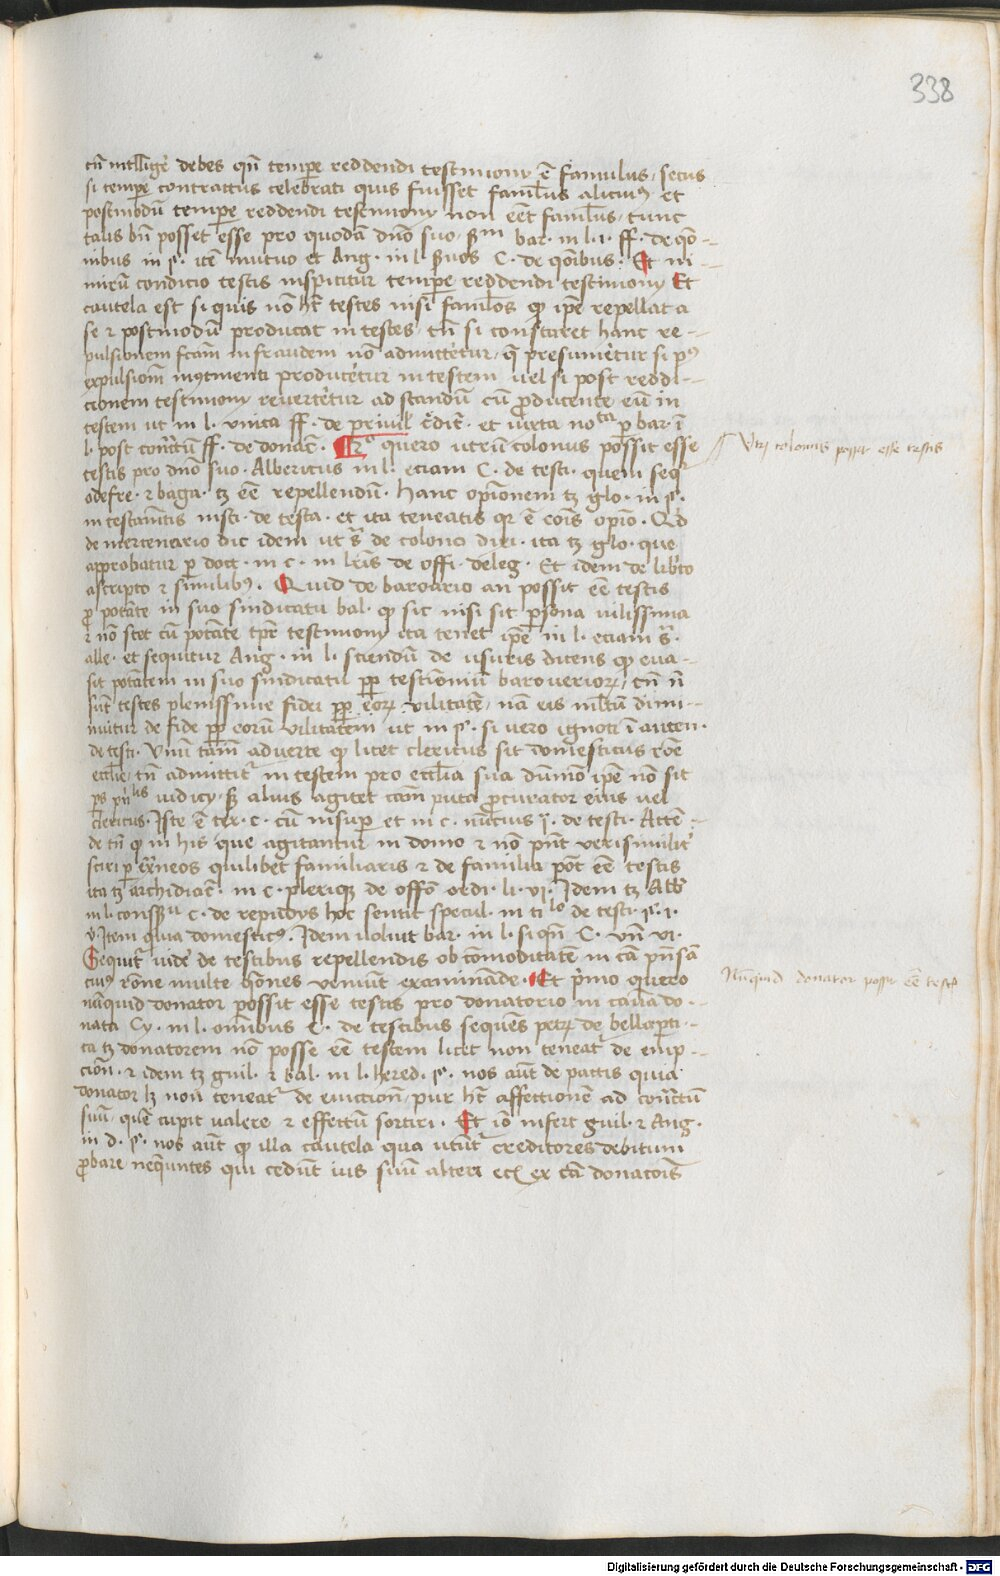 338
tn̄ intᷝlligē debes qn̄ tempe reddendi testimony ē famulus, secus
si tempe contractus celebrati quis fuisset famlus alicui9 et
postmodū tempe reddendi testimony non eet famlus, tunc
talis bn̄ posset esse pro quodā dn̄o suo, bar. in l. 1. ff. de q̄o-
nibus in p̄. itē mutuo et Ang. in l. s̄uos C. de q̄oibus. Et ni-
mirū condicio testis inspicitur tempe reddendi testimony Et
cautela est si quis nō ht testes nisi famlos qp ipe repellat a
se ⁊ postmodū producat in testes, tn̄ si constaret hanc re-
pulsionem fcam in fraudem nō admitteret, presumeret si p9
expulsiom producet in testem uel si post reddi-
cionem testimony reverteret ad standū cū producente eū in
testem ut in l. unica ff. de priuil' et iuxta nota p bar. ī
l. post cont̄ctū ff. de donac. quero utrū colonus possit esse
Utrz colonus posset esse testis
testis pro dn̄o suo. Albericus in l. eciam C. de testi. quem seq
odefre. ⁊ balga. tz eē repellendū. hanc opionem tz glo. in p̄.
in testamtis insti. de testa. et ita teneatis qr ē cois opio. Qd
de mercenario dic idem ut s̄ de colono dixi. ita tz glo. que
approbatur p doct. in c. in lris de offi. deleg. Et idem de libto
ascripto ⁊ similib9. Quid de baroario an possit eē testis
p potate in suo sindicatu bal. qp sic nisi sit psona uilissima
⁊ nō stet cū potate tpr testimony ita tenet ipe in l. eciam s̄.
alle. et sequitur Ang. in l. sciendū de usuris dicens qp eua-
sit potatem in suo sindicatu pp testioniū baroueriorz, cū n̄
sint testes plenissime fidei pp eorz uilitate, nā eis mltum dimi-
nuitur de fide pp eorū uilitatem ut in p̄. si uero ignoti ī auten.
de testi. Unū tam aduerte qp licet clericus sit domesticus rōe
ecclie, tn̄ admittit in testem pro ecclia sua dūmō ipe nō sit
ps pnlis iudicy, s alius agitet cam puta pcurator eius uel
clericus. Iste ē tex. c. cū insup et in c. nūcius ī. de testi. Atte-
de tn̄ qp in his que agitantur in domo ⁊ nō pnt uerisimilit
sciri p extneos quilibet familiaris ⁊ de familia pōt eē testis
ita tz archidiac. in c. plerique de offō ordi. li. vi. Idem tz Alb
in l. consensu c. de repudys hoc sentit specul. in tilo de testi. p̄. 1.
v. Item quia domestic9. Idem uoluit bar. in l. si qn̄ C. un vi.
Sequit uide de testibus repellendis ob comoditate in ca pn̄sa
cui9 rōne multe q̄ones ueniūt examinade. Et primo quero
Nunquid donator posset eē testis
nāquid donator possit esse testis pro donatorio in causa do-
nata Cy. in l. omibus C. de testibus sequēs petrz de bellapti-
ca tz donatorem nō posse eē testem licet non teneat de euic-
cion. ⁊ idem tz guil. ⁊ bal. in l. hered. p̄. nos aūt de pactis quia
donator lz non teneat de euiction, pur ht affectionem ad cont̄ctū
suū, quē cupit ualere ⁊ effectū sortiri. Et iō infert guil. ⁊ Ang.
in d. p̄. nos aūt qp illa cautela qua utūt creditores debitum
probare nequntes qui cedūt ius suū alteri ecz ex ca donacois
Digitalisierung gefördert durch die Deutsche Forschungsgemeinschaft - DFG